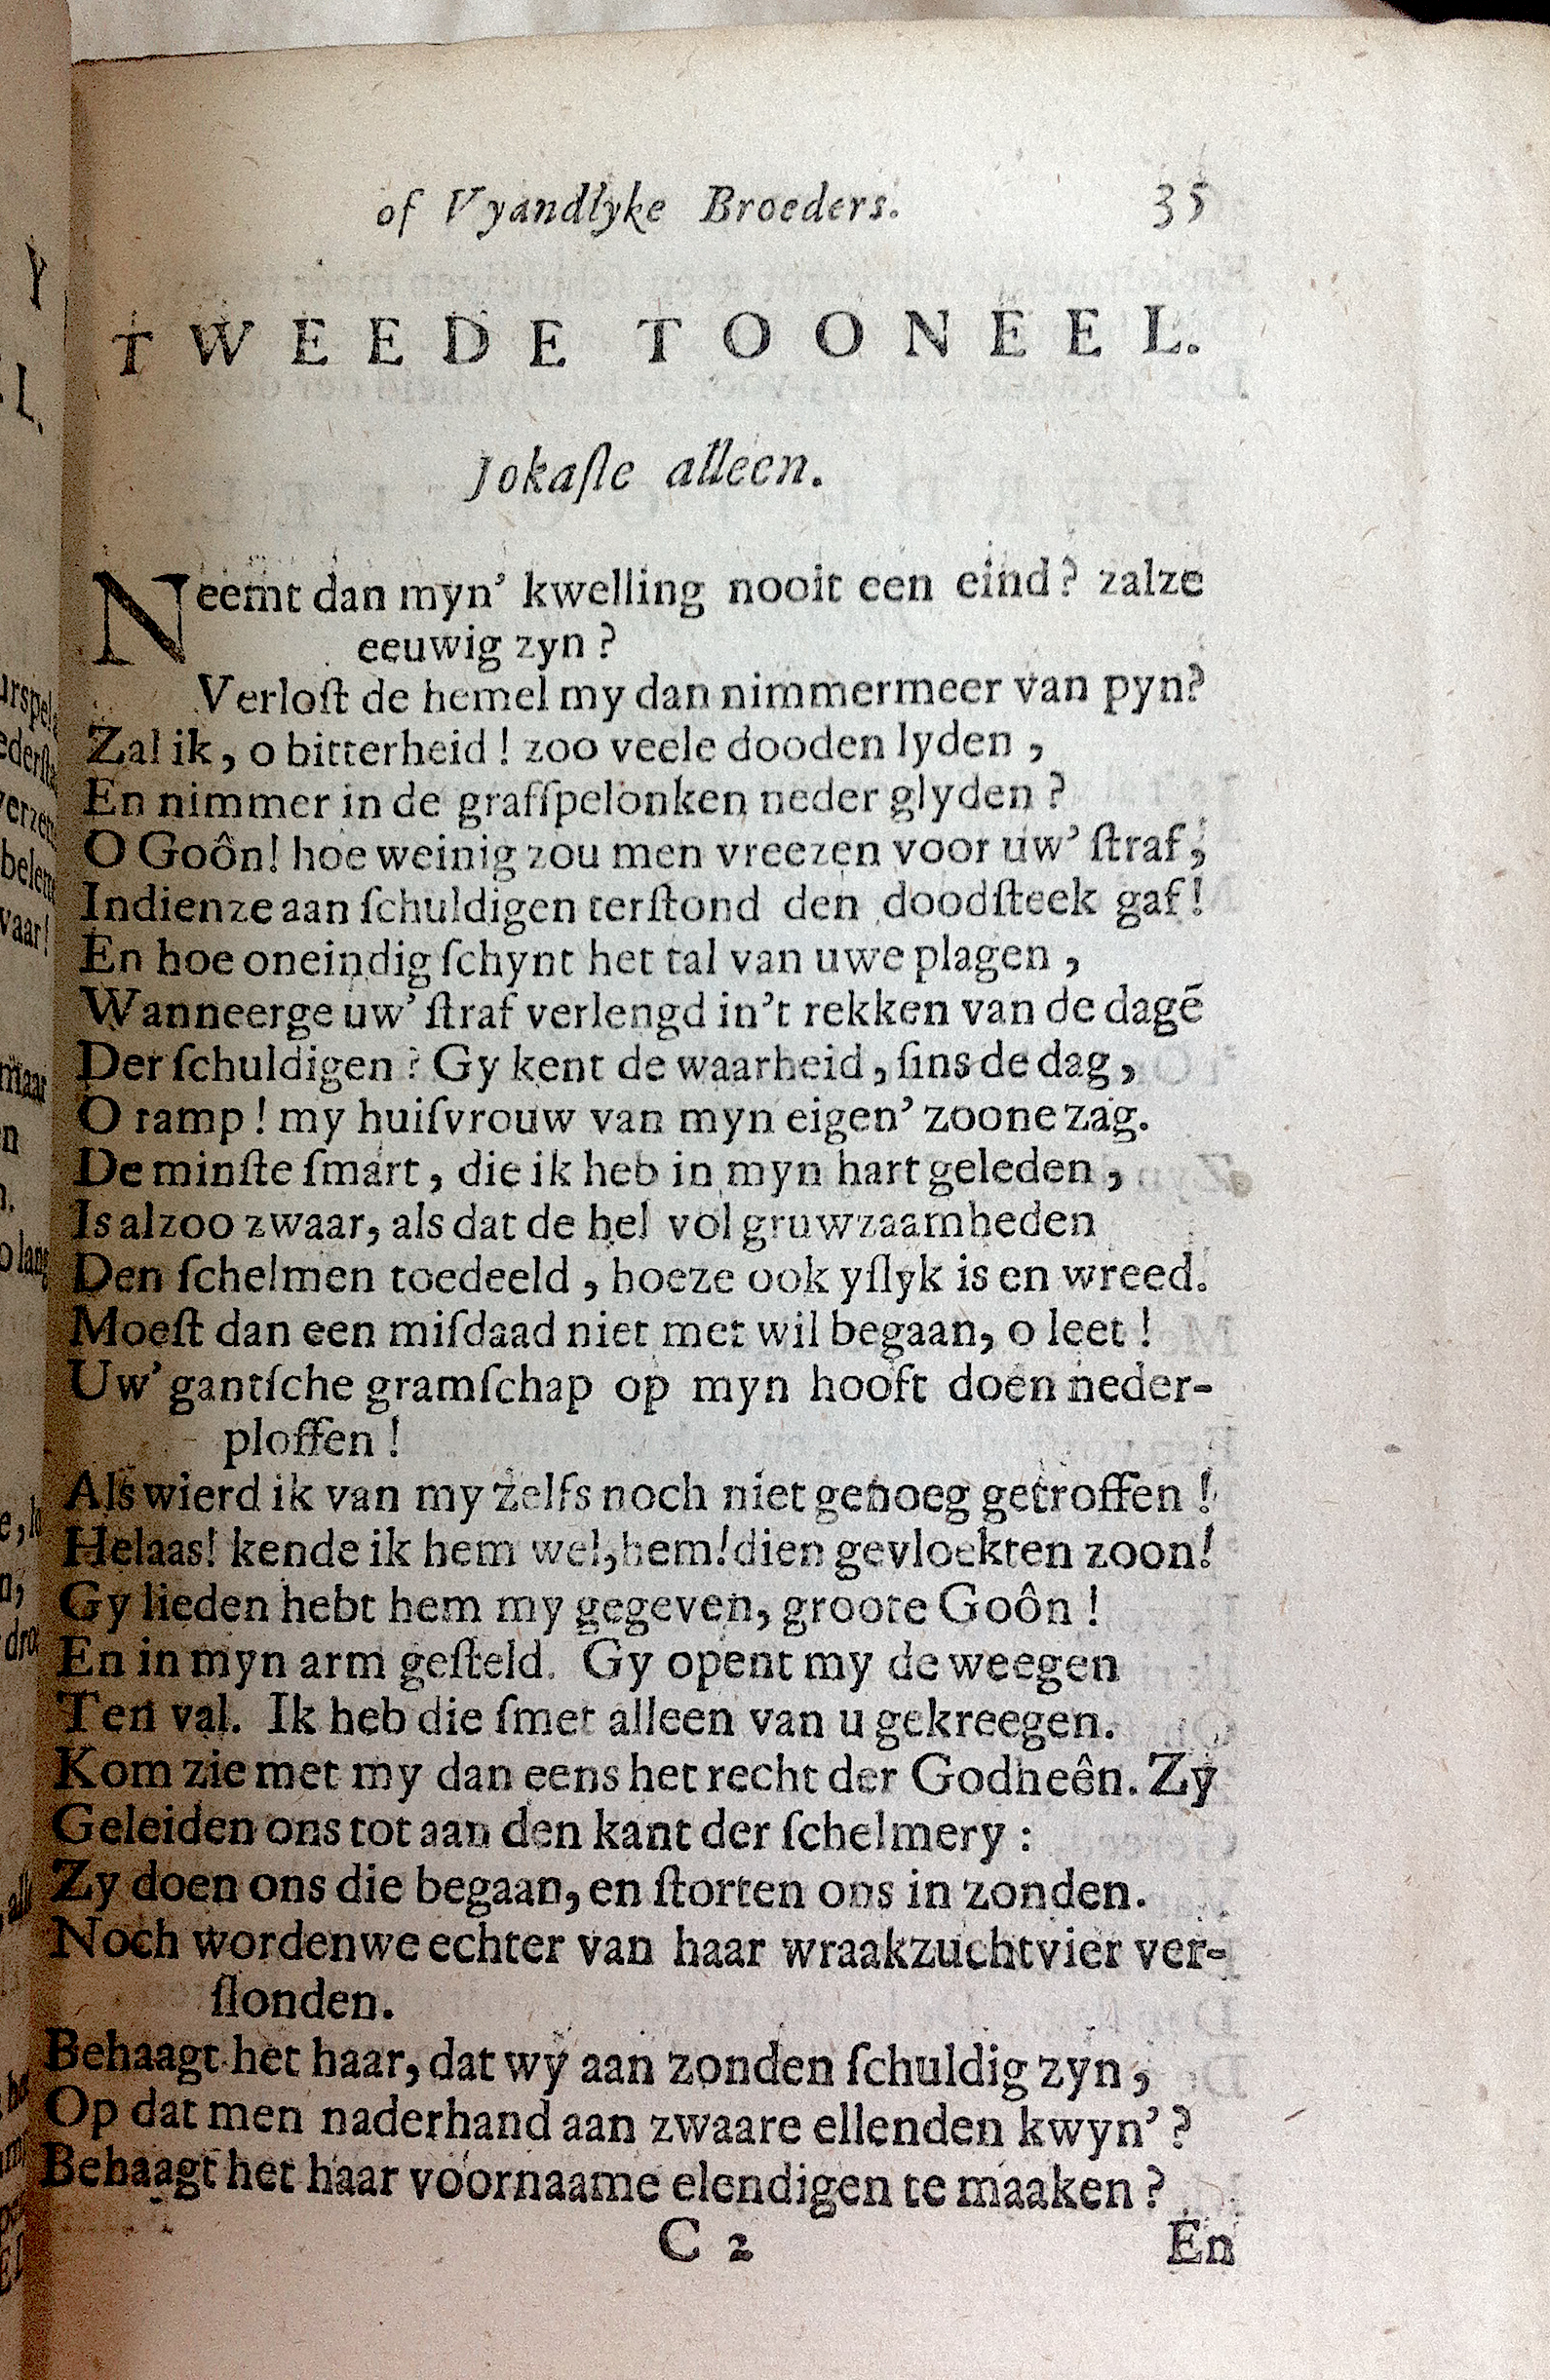 of Vyandlyke Broeders. 35
TWEEDE TOONEEL.
Jokaſte alleen.
Neemt dan myn' kwelling nooit een eind? zalze
eeuwig zyn?
Verloſt de hemel my dan nimmermeer van pyn?
Zal ik, o bitterheid! zoo veele dooden lyden,
En nimmer in de grafſpelonken neder glyden?
O Goôn! hoe weinig zou men vreezen voor uw' ſtraf,
Indienze aan ſchuldigen terſtond den doodſteek gaf!
En hoe oneindig ſchynt het tal van uwe plagen,
Wanneerge uw' ſtraf verlengd in't rekken van de dagē
Der ſchuldigen? Gy kent de waarheid, ſins de dag,
O ramp! my huiſvrouw van myn eigen' zoone zag.
De minſte ſmart, die ik heb in myn hart geleden,
Is alzoo zwaar, als dat de hel vol gruwzaamheden
Den ſchelmen toedeeld, hoeze ook yſlyk is en wreed.
Moeſt dan een miſdaad niet met wil begaan, o leet!
Uw' gantſche gramſchap op myn hooft doen neder-
ploffen!
Als wierd ik van my zelfs noch niet genoeg getroffen!
Helaas! kende ik hem wel, hem! dien gevloekten zoon!
Gy lieden hebt hem my gegeven, groote Goôn!
En in myn arm geſteld. Gy opent my de weegen
Ten val. Ik heb die ſmet alleen van u gekreegen.
Kom zie met my dan eens het recht der Godheên. Zy
Geleiden ons tot aan den kant der ſchelmery:
Zy doen ons die begaan, en ſtorten ons in zonden.
Noch wordenwe echter van haar wraakzuchtvier ver-
ſlonden.
Behaagt het haar, dat wy aan zonden ſchuldig zyn,
Op dat men naderhand aan zwaare ellenden kwyn'?
Behaagt het haar voornaame elendigen te maaken?
C 2 En